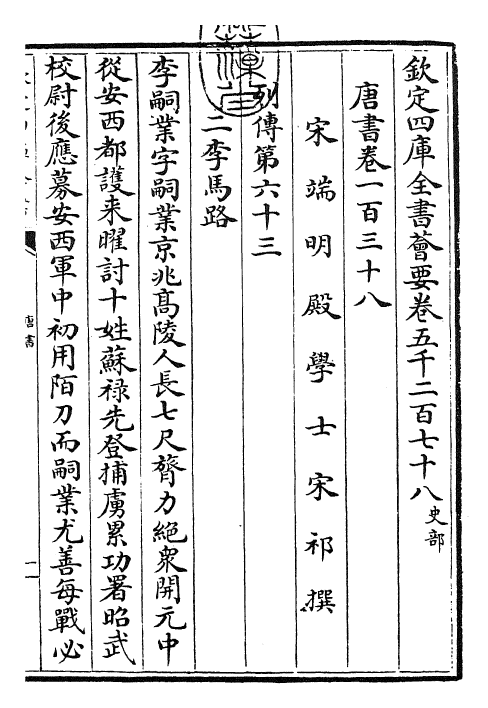 欽定四庫全書薈要卷五千二百七十八史部
唐書卷一百三十八
宋端明殿學士宋祁撰
列傳第六十三
二李馬路
李嗣業字嗣業京兆高陵人長七尺膂力絶衆開元中
從安西都護来曜討十姓蘇禄先登捕虜累功署昭武
校尉後應募安西軍中初用陌刀而嗣業尤善每戰必
唐書
一